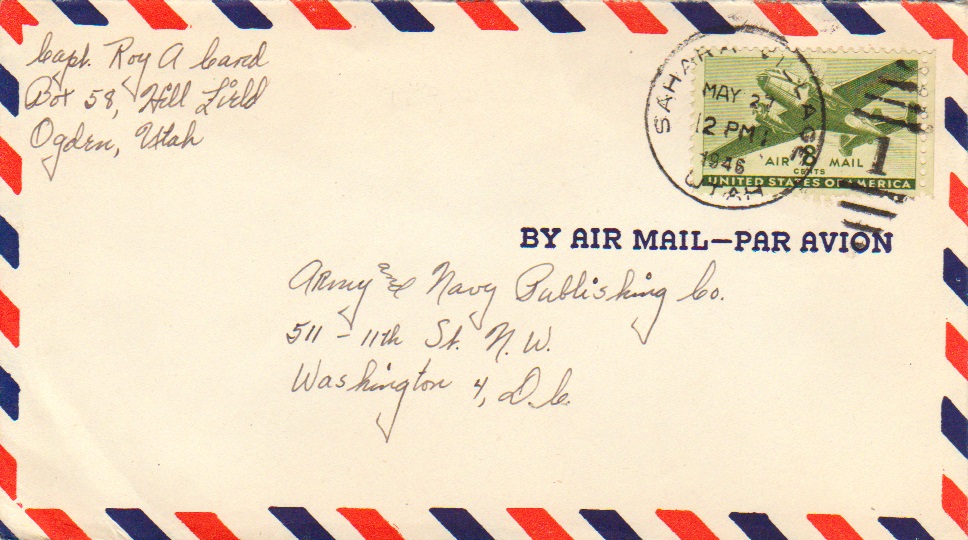 Capt. Roy A Card
Box 58, Hill Field
Ogden, Utah
SAHARA VILLAGE
MAY 27
12 PM
1946
UTAH
1
8
AIR MAIL
CENTS
UNITED STATES OF AMERICA
BY AIR MAIL—PAR AVION
Army and Navy Publishing Co.
511 - 11th St. N. W.
Washington 4, D.C.